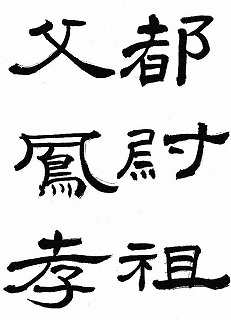 都尉祖
父鳳孝